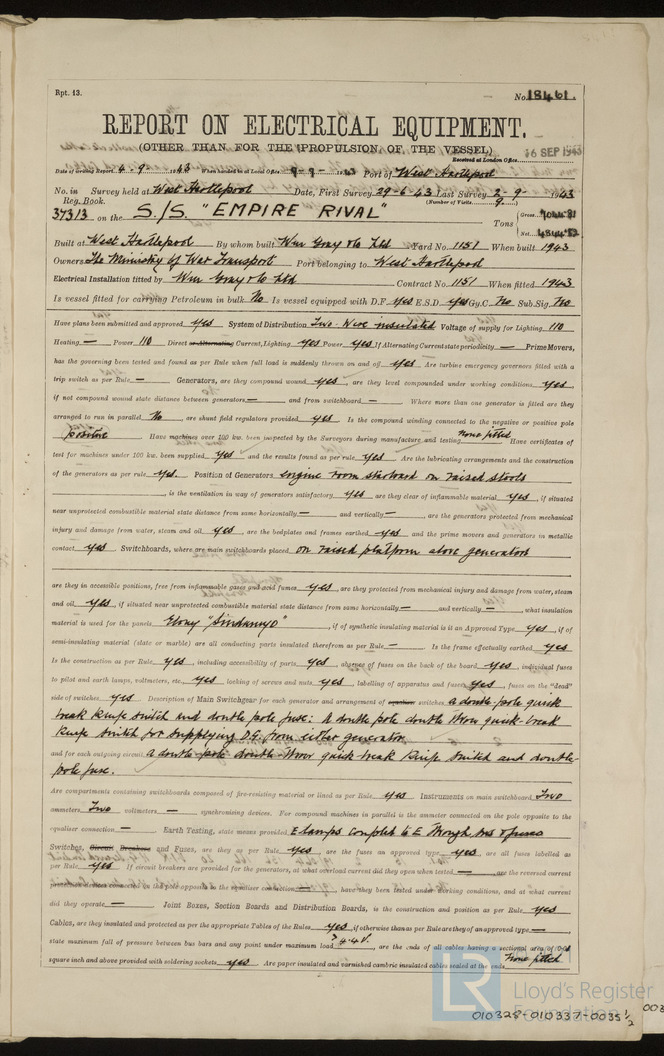 Rpt. 13.
No. 18461.
REPORT ON ELECTRICAL EQUIPMENT.
(OTHER THAN FOR THE PROPULSION OF THE VESSEL)
Received at London Office 16 SEP 1943
Date of writing Report 4-9-1943 When handed in at Local Office 9-9-1943 Port of West Hartlepool
No. in Survey held at West Hartlepool Date, First Survey 29-6-43 Last Survey 2-9-1943
Reg. Book. (Number of Visits 9.)
37313 on the S./S. "EMPIRE RIVAL" Tons Gross Net
Built at West Hartlepool By whom built Wm Gray & Co Ltd Yard No. 1151 When built 1943
Owners The Ministry of War Transport Port belonging to West Hartlepool
Electrical Installation fitted by Wm Gray & Co Ltd Contract No. 1151 When fitted 1943
Is vessel fitted for carrying Petroleum in bulk No Is vessel equipped with D.F. yes E.S.D yes Gy.C. No Sub.Sig. No
Have plans been submitted and approved yes System of Distribution Two-Wire insulated Voltage of supply for Lighting 110
Heating — Power 110 Direct or Alternating Current, Lighting yes Power yes If Alternating Current state periodicity — Prime Movers,
has the governing been tested and found as per Rule when full load is suddenly thrown on and off yes Are turbine emergency governors fitted with a
trip switch as per Rule — Generators, are they compound wound yes, are they level compounded under working conditions yes
if not compound wound state distance between generators — and from switchboard — Where more than one generator is fitted are they
arranged to run in parallel No, are shunt field regulators provided yes Is the compound winding connected to the negative or positive pole
positive Have machines over 100 kw. been inspected by the Surveyors during manufacture and testing None fitted Have certificates of
test for machines under 100 kw. been supplied yes and the results found as per rule yes Are the lubricating arrangements and the construction
of the generators as per rule yes. Position of Generators engine room starboard on raised stools
, is the ventilation in way of generators satisfactory yes are they clear of inflammable material yes, if situated
near unprotected combustible material state distance from same horizontally — and vertically —, are the generators protected from mechanical
injury and damage from water, steam and oil yes, are the bedplates and frames earthed yes and the prime movers and generators in metallic
contact yes Switchboards, where are main switchboards placed on raised platform above generators
are they in accessible positions, free from inflammable gases and acid fumes yes, are they protected from mechanical injury and damage from water, steam
and oil yes, if situated near unprotected combustible material state distance from same horizontally — and vertically —, what insulation
material is used for the panels Ebony "Sindanyo", if of synthetic insulating material is it an Approved Type yes, if of
semi-insulating material (slate or marble) are all conducting parts insulated therefrom as per Rule — Is the frame effectually earthed yes
Is the construction as per Rule yes, including accessibility of parts yes, absence of fuses on the back of the board yes, individual fuses
to pilot and earth lamps, voltmeters, etc., yes locking of screws and nuts yes, labelling of apparatus and fuses yes, fuses on the "dead"
side of switches yes Description of Main Switchgear for each generator and arrangement of equaliser switches a double-pole quick
break knife switch and double pole fuse: A double pole double throw quick-break
knife switch for supplying D.G. from either generator
and for each outgoing circuit a double pole double throw quick-break knife switch and double-
pole fuse.
Are compartments containing switchboards composed of fire-resisting material or lined as per Rule yes Instruments on main switchboard Two
ammeters Two voltmeters — synchronising devices. For compound machines in parallel is the ammeter connected on the pole opposite to the
equaliser connection — Earth Testing, state means provided E lamps coupled to E through
Switches, Circuit Breakers and Fuses, are they as per Rule yes are the fuses an approved type yes, are all fuses labelled as
per Rule yes If circuit breakers are provided for the generators, at what overload current did they open when tested —, are the reversed current
protection devices connected on the pole opposite to the equaliser connection —, have they been tested under working conditions, and at what current
did they operate — Joint Boxes, Section Boards and Distribution Boards, is the construction and position as per Rule yes
Cables, are they insulated and protected as per the appropriate Tables of the Rules yes, if otherwise than as per Rule are they of an approved type —,
state maximum fall of pressure between bus bars and any point under maximum load 3.44V., are the ends of all cables having a sectional area of
square inch and above provided with soldering sockets yes Are paper insulated and varnished cambric insulated cables sealed at the ends None fitted
LR
Lloyd's Register
Foundation
010328-010337-0035 1/2
003